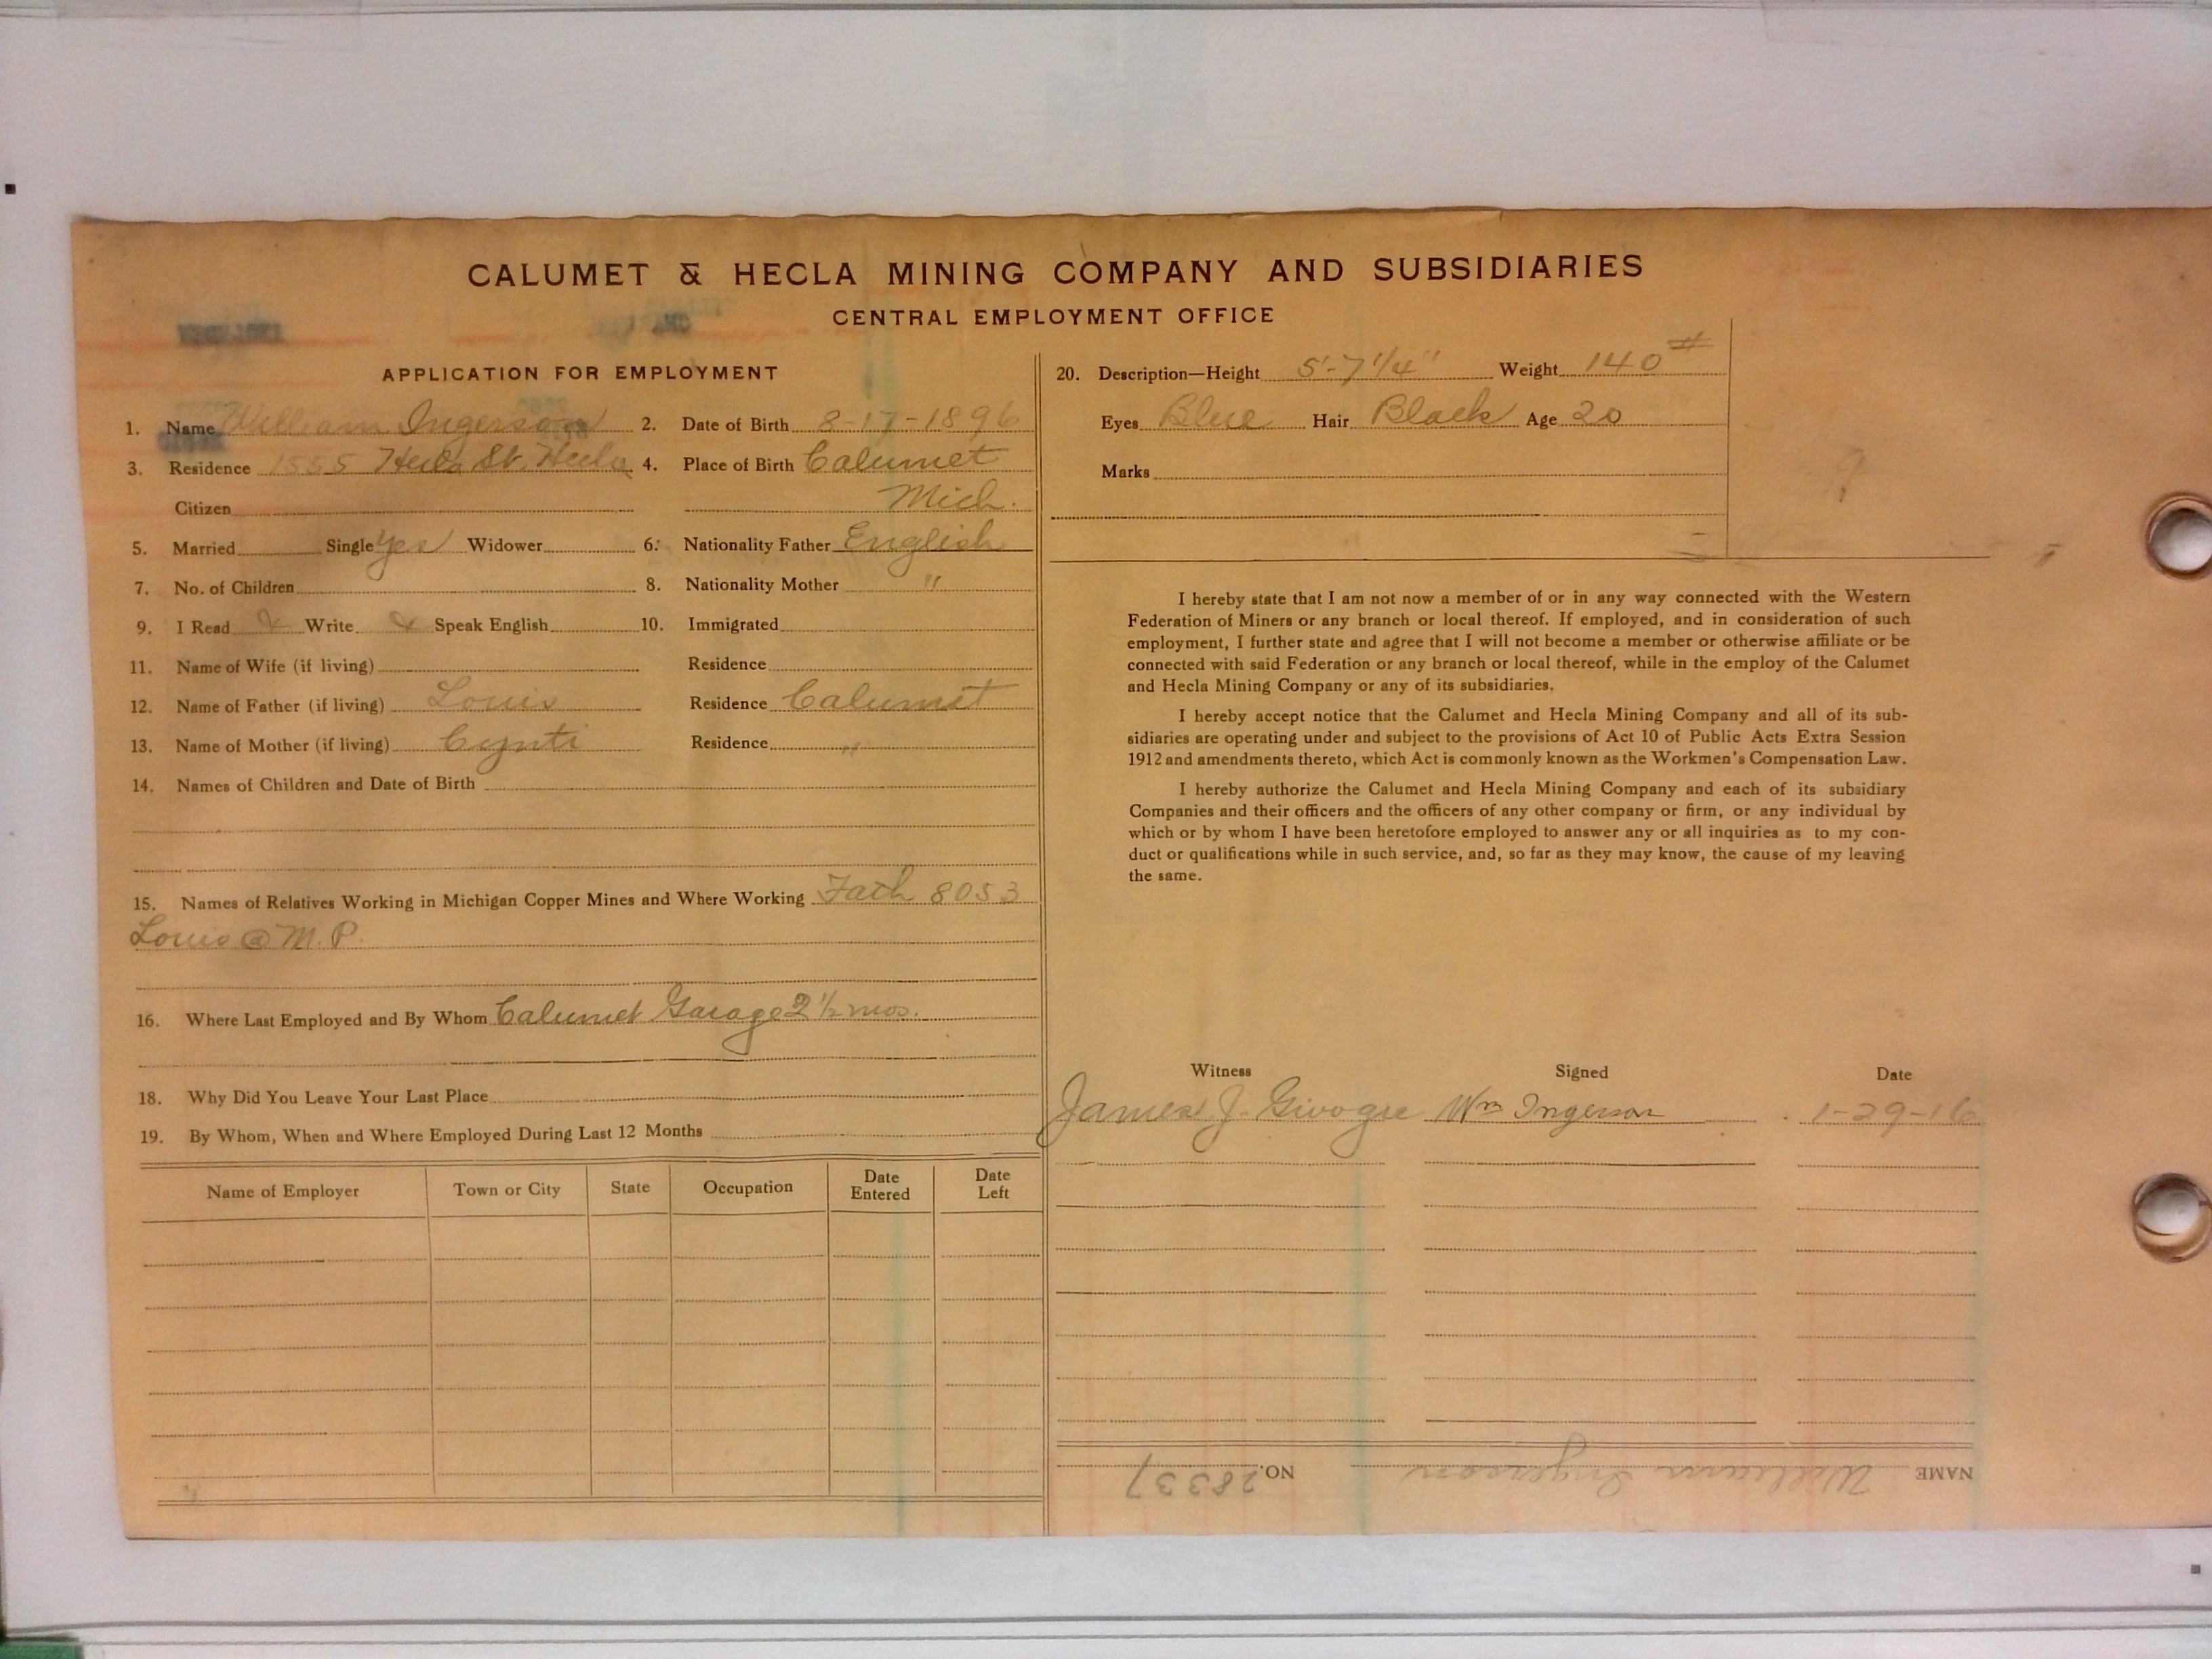 CALUMET & HECLA MINING COMPANY AND SUBSIDIARIES
CENTRAL EMPLOYMENT OFFICE
APPLICATION FOR EMPLOYMENT
1. Name William Ingerson 2. Date of Birth 8-17-1896
3. Residence 1555 Hecla St. Hecla 4. Place of Birth Calumet
Citizen Mich.
5. Married Single Yes Widower 6. Nationality Father English
7. No. of Children 8. Nationality Mother "
9. I Read & Write & Speak English 10. Immigrated
11. Name of Wife (if living) Residence
12. Name of Father (if living) Louis Residence Calumet
13. Name of Mother (if living) Cynti Residence "
14. Names of Children and Date of Birth
15. Names of Relatives Working in Michigan Copper Mines and Where Working Fath 8053
Louis @ M. P.
16. Where Last Employed and By Whom Calumet Garage 2 1/2 mos.
18. Why Did You Leave Your Last Place
19. By Whom, When and Where Employed During Last 12 Months
Name of Employer Town or City State Occupation Date Entered Date Left
20. Description—Height 5'-7 1/4" Weight 140 #
Eyes Blue Hair Black Age 20
Marks
I hereby state that I am not now a member of or in any way connected with the Western
Federation of Miners or any branch or local thereof. If employed, and in consideration of such
employment, I further state and agree that I will not become a member or otherwise affiliate or be
connected with said Federation or any branch or local thereof, while in the employ of the Calumet
and Hecla Mining Company or any of its subsidiaries.
I hereby accept notice that the Calumet and Hecla Mining Company and all of its sub-
sidiaries are operating under and subject to the provisions of Act 10 of Public Acts Extra Session
1912 and amendments thereto, which Act is commonly known as the Workmen's Compensation Law.
I hereby authorize the Calumet and Hecla Mining Company and each of its subsidiary
Companies and their officers and the officers of any other company or firm, or any individual by
which or by whom I have been heretofore employed to answer any or all inquiries as to my con-
duct or qualifications while in such service, and, so far as they may know, the cause of my leaving
the same.
Witness Signed Date
James J. Wm Ingerson 1-29-16
NAME William Ingerson NO. 28337